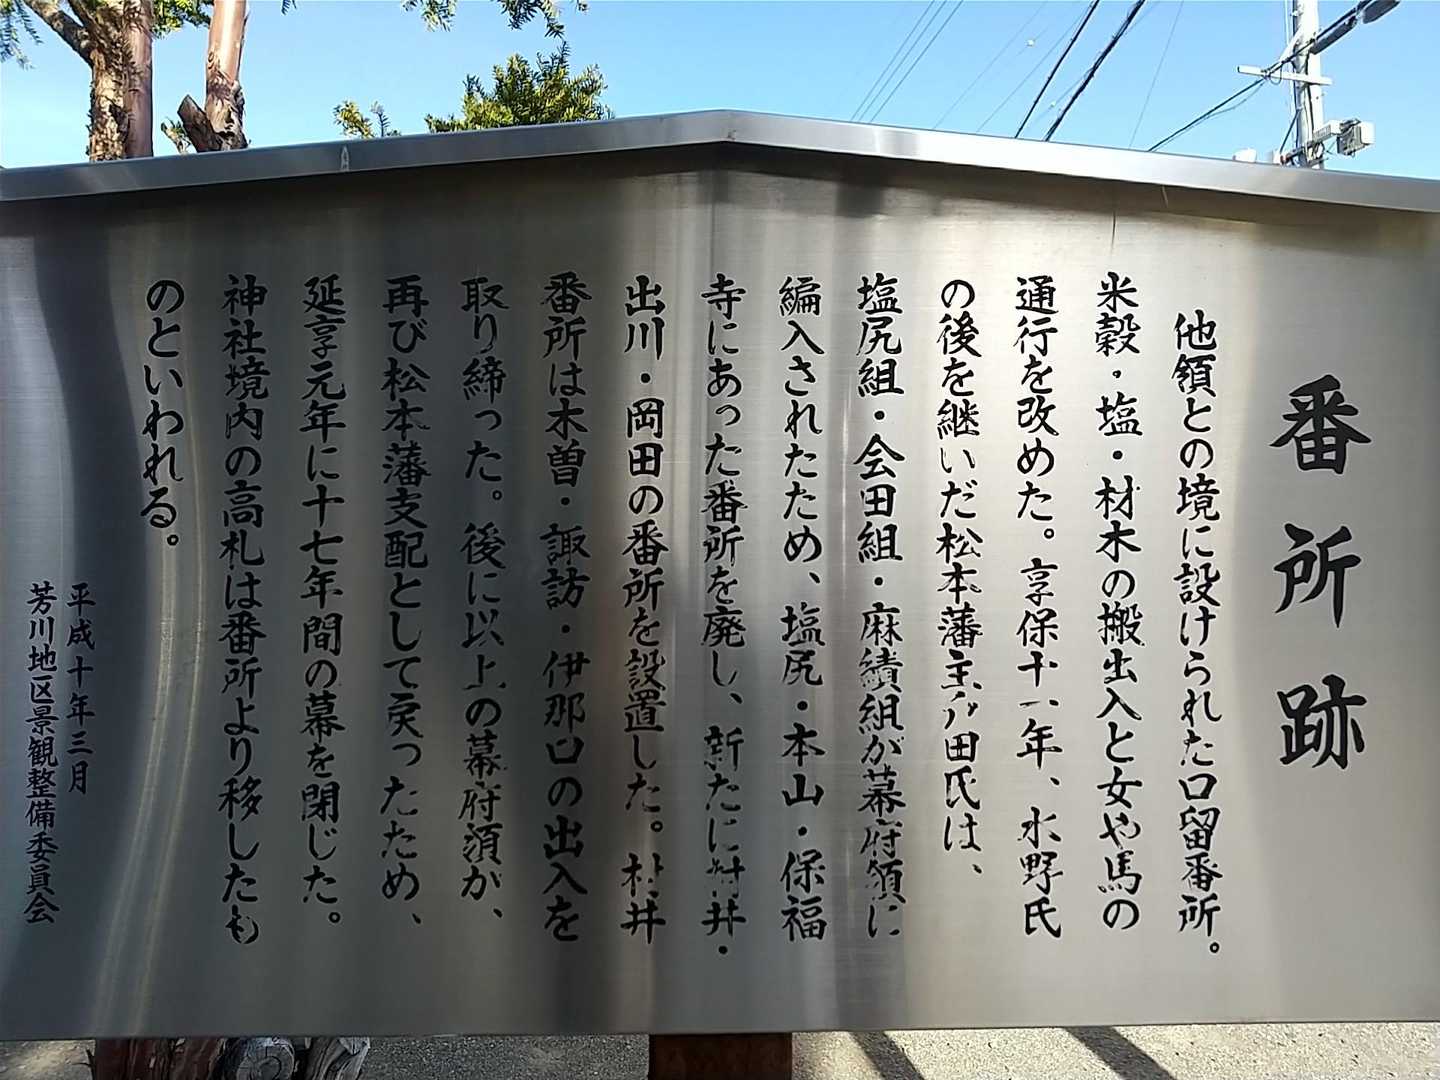 番所跡
他領との境に設けられた口留番所。
米穀・塩・材木の搬出入と女や馬の
通行を改めた。享保十一年、水野氏
の後を継いだ松本藩主戸田氏は、
塩尻組・会田組・麻績組が幕府領に
編入されたため、塩尻・本山・保福
寺にあった番所を廃し、新たに村井・
出川・岡田の番所を設置した。村井
番所は木曽・諏訪・伊那口の出入を
取り締った。後に以上の幕府須が、
再び松本藩支配として戻ったため、
延享元年に十七年間の幕を閉じた。
神社境内の高札は番所より移したも
のといわれる。
平成十年三月
芳川地区景観整備委員会